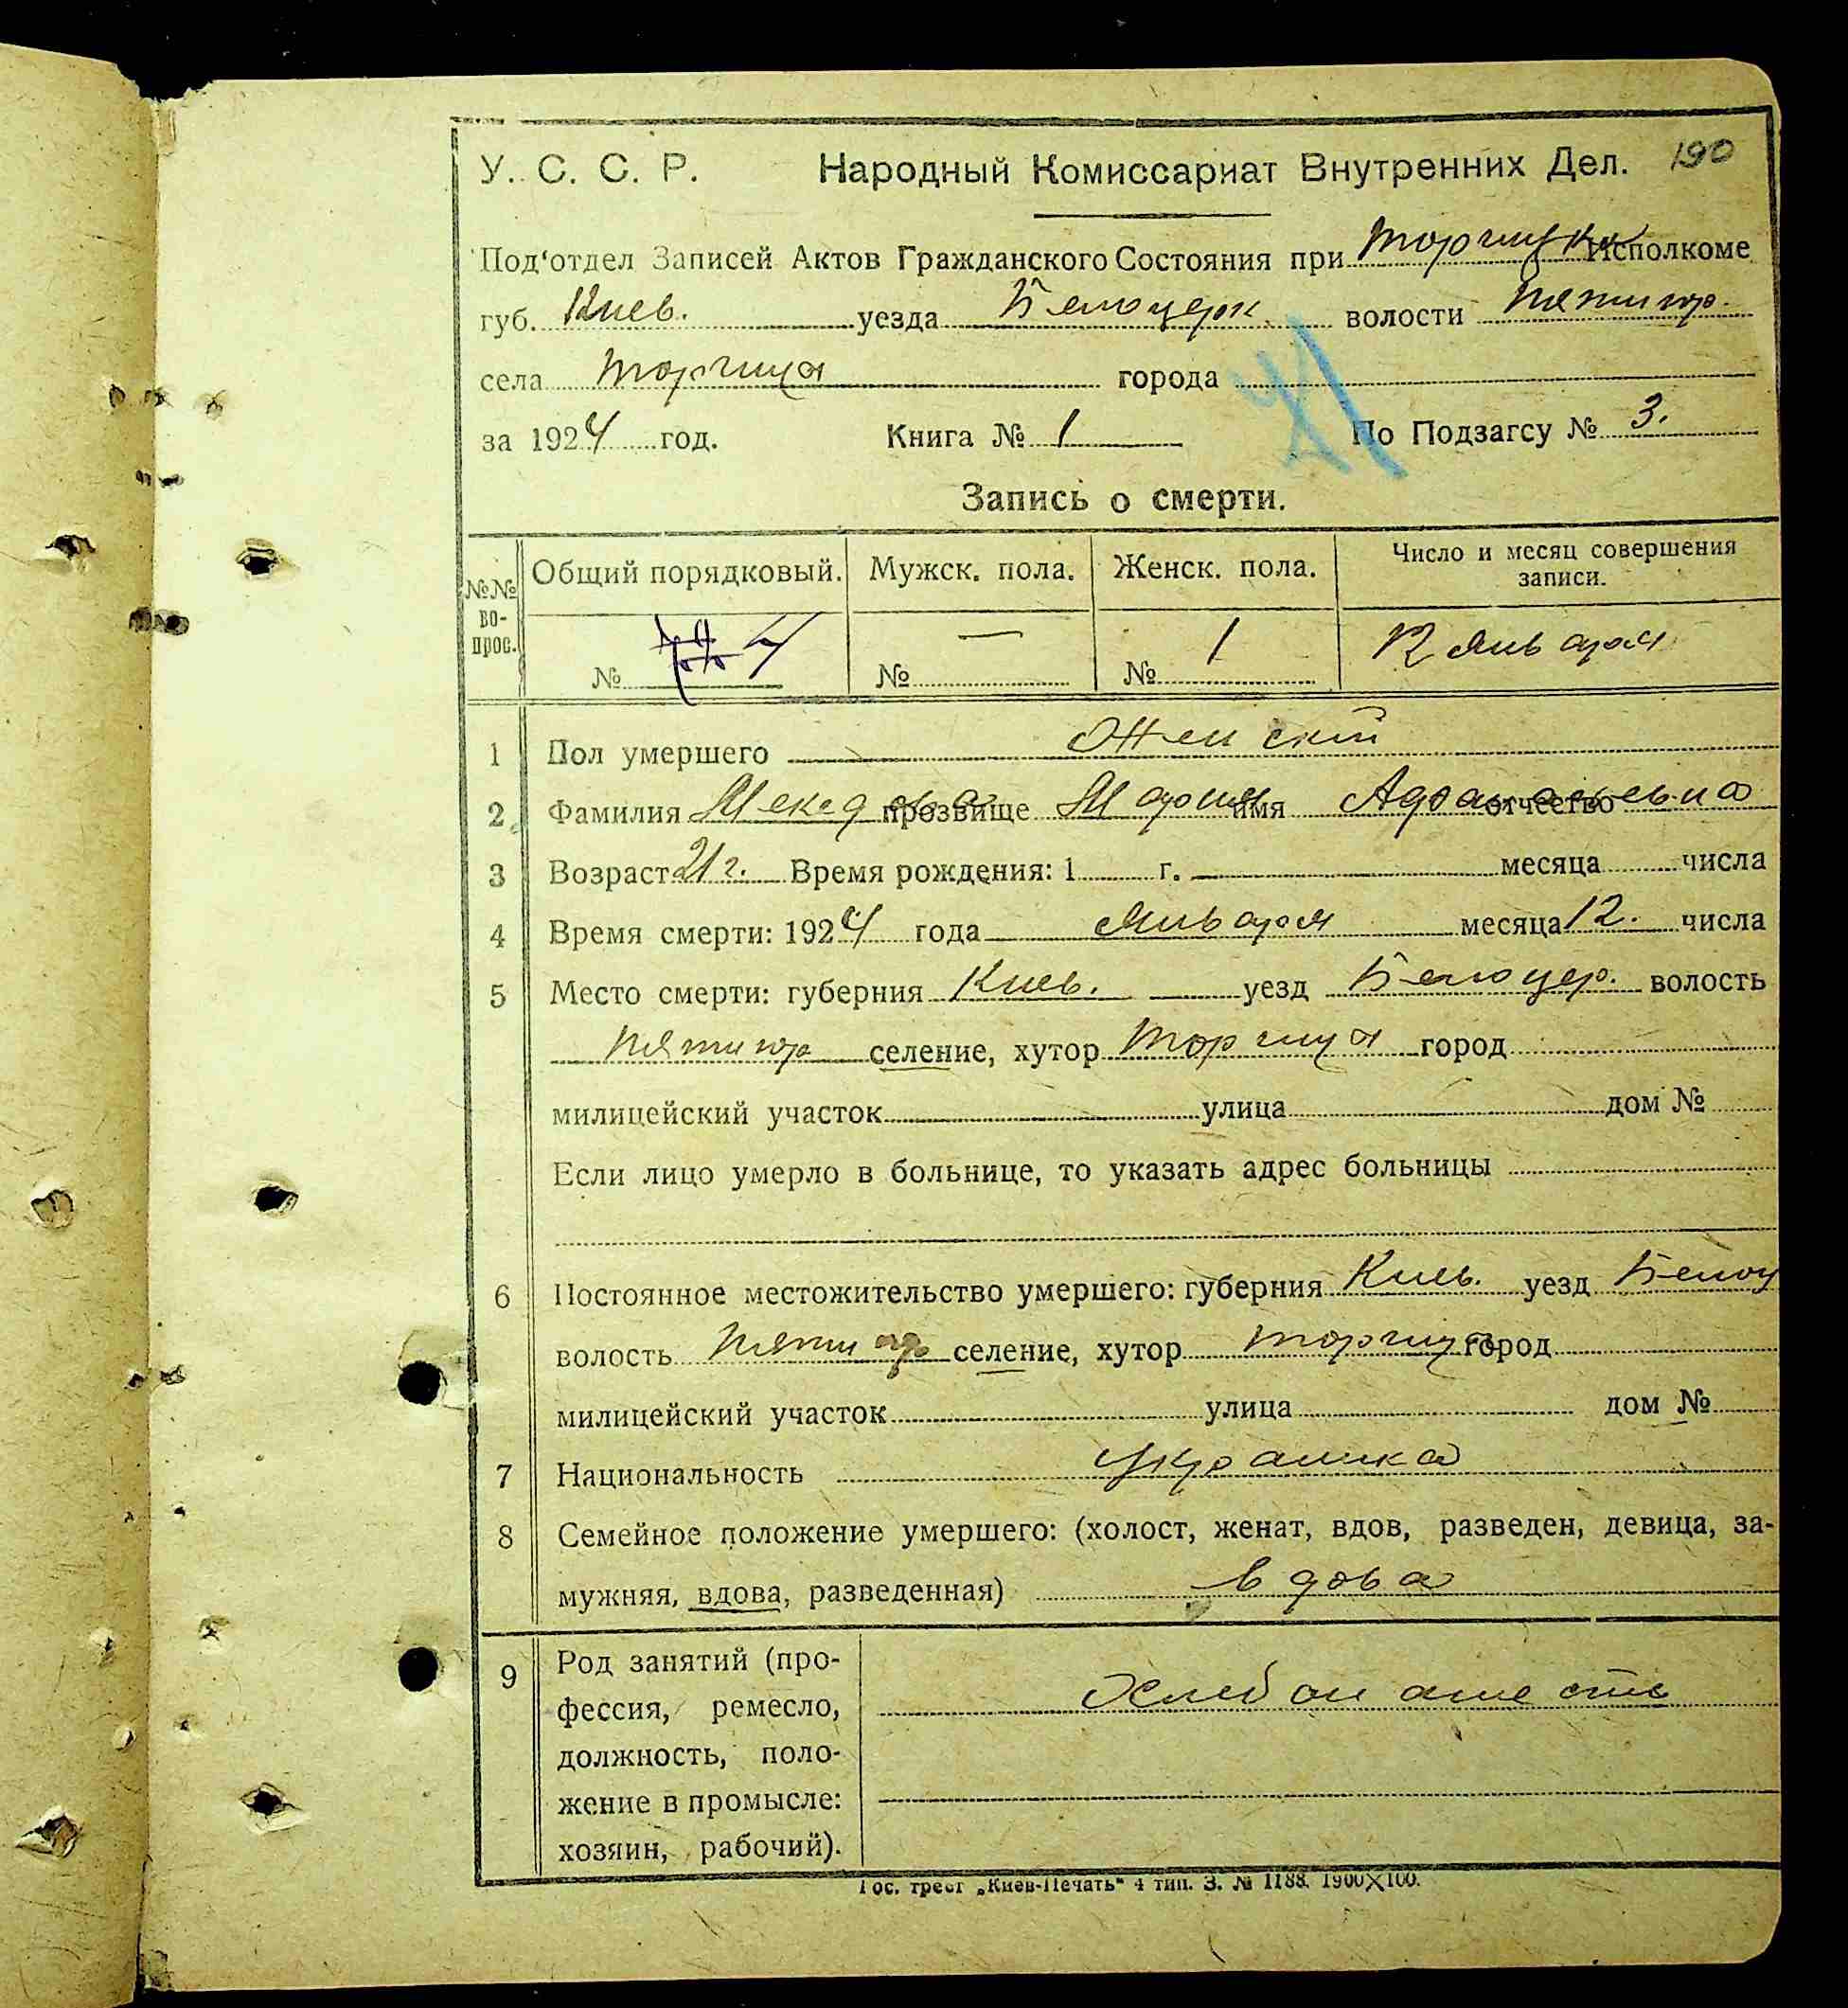 190
У. С. С. Р. Народный Комиссариат Внутренних Дел.
Под'отдел Записей Актов Гражданского Состояния при Исполкоме
губ. Киев. уезда Белоцерк. волости Пятигор.
села Торчица города
за 1924 год. Книга № 1 По Подзагсу № 3.
Запись о смерти.
№№ вопрос. Общий порядковый. Мужск. пола. Женск. пола. Число и месяц совершения записи.
№ № — № 1 12 Января
1 Пол умершего Женский
2 Фамилия прозвище Мария имя отчество
3 Возраст 21 г. Время рождения: 1 г. месяца числа
4 Время смерти: 1924 года Января месяца 12. числа
5 Место смерти: губерния Киев. уезд Белоцер. волость
Пятигор селение, хутор Торчица город
милицейский участок улица дом №
Если лицо умерло в больнице, то указать адрес больницы
6 Постоянное местожительство умершего: губерния Киев. уезд Белоц
волость Пятигор селение, хутор Торчица город
милицейский участок улица дом №
7 Национальность Украинка
8 Семейное положение умершего: (холост, женат, вдов, разведен, девица, за-
мужняя, вдова, разведенная) вдова
9 Род занятий (про-
фессия, ремесло,
должность, поло-
жение в промысле:
хозяин, рабочий).
Хлебопашество
Гос. трест „Киев-Печать" 4 тип. З. № 1188. 1900×100.